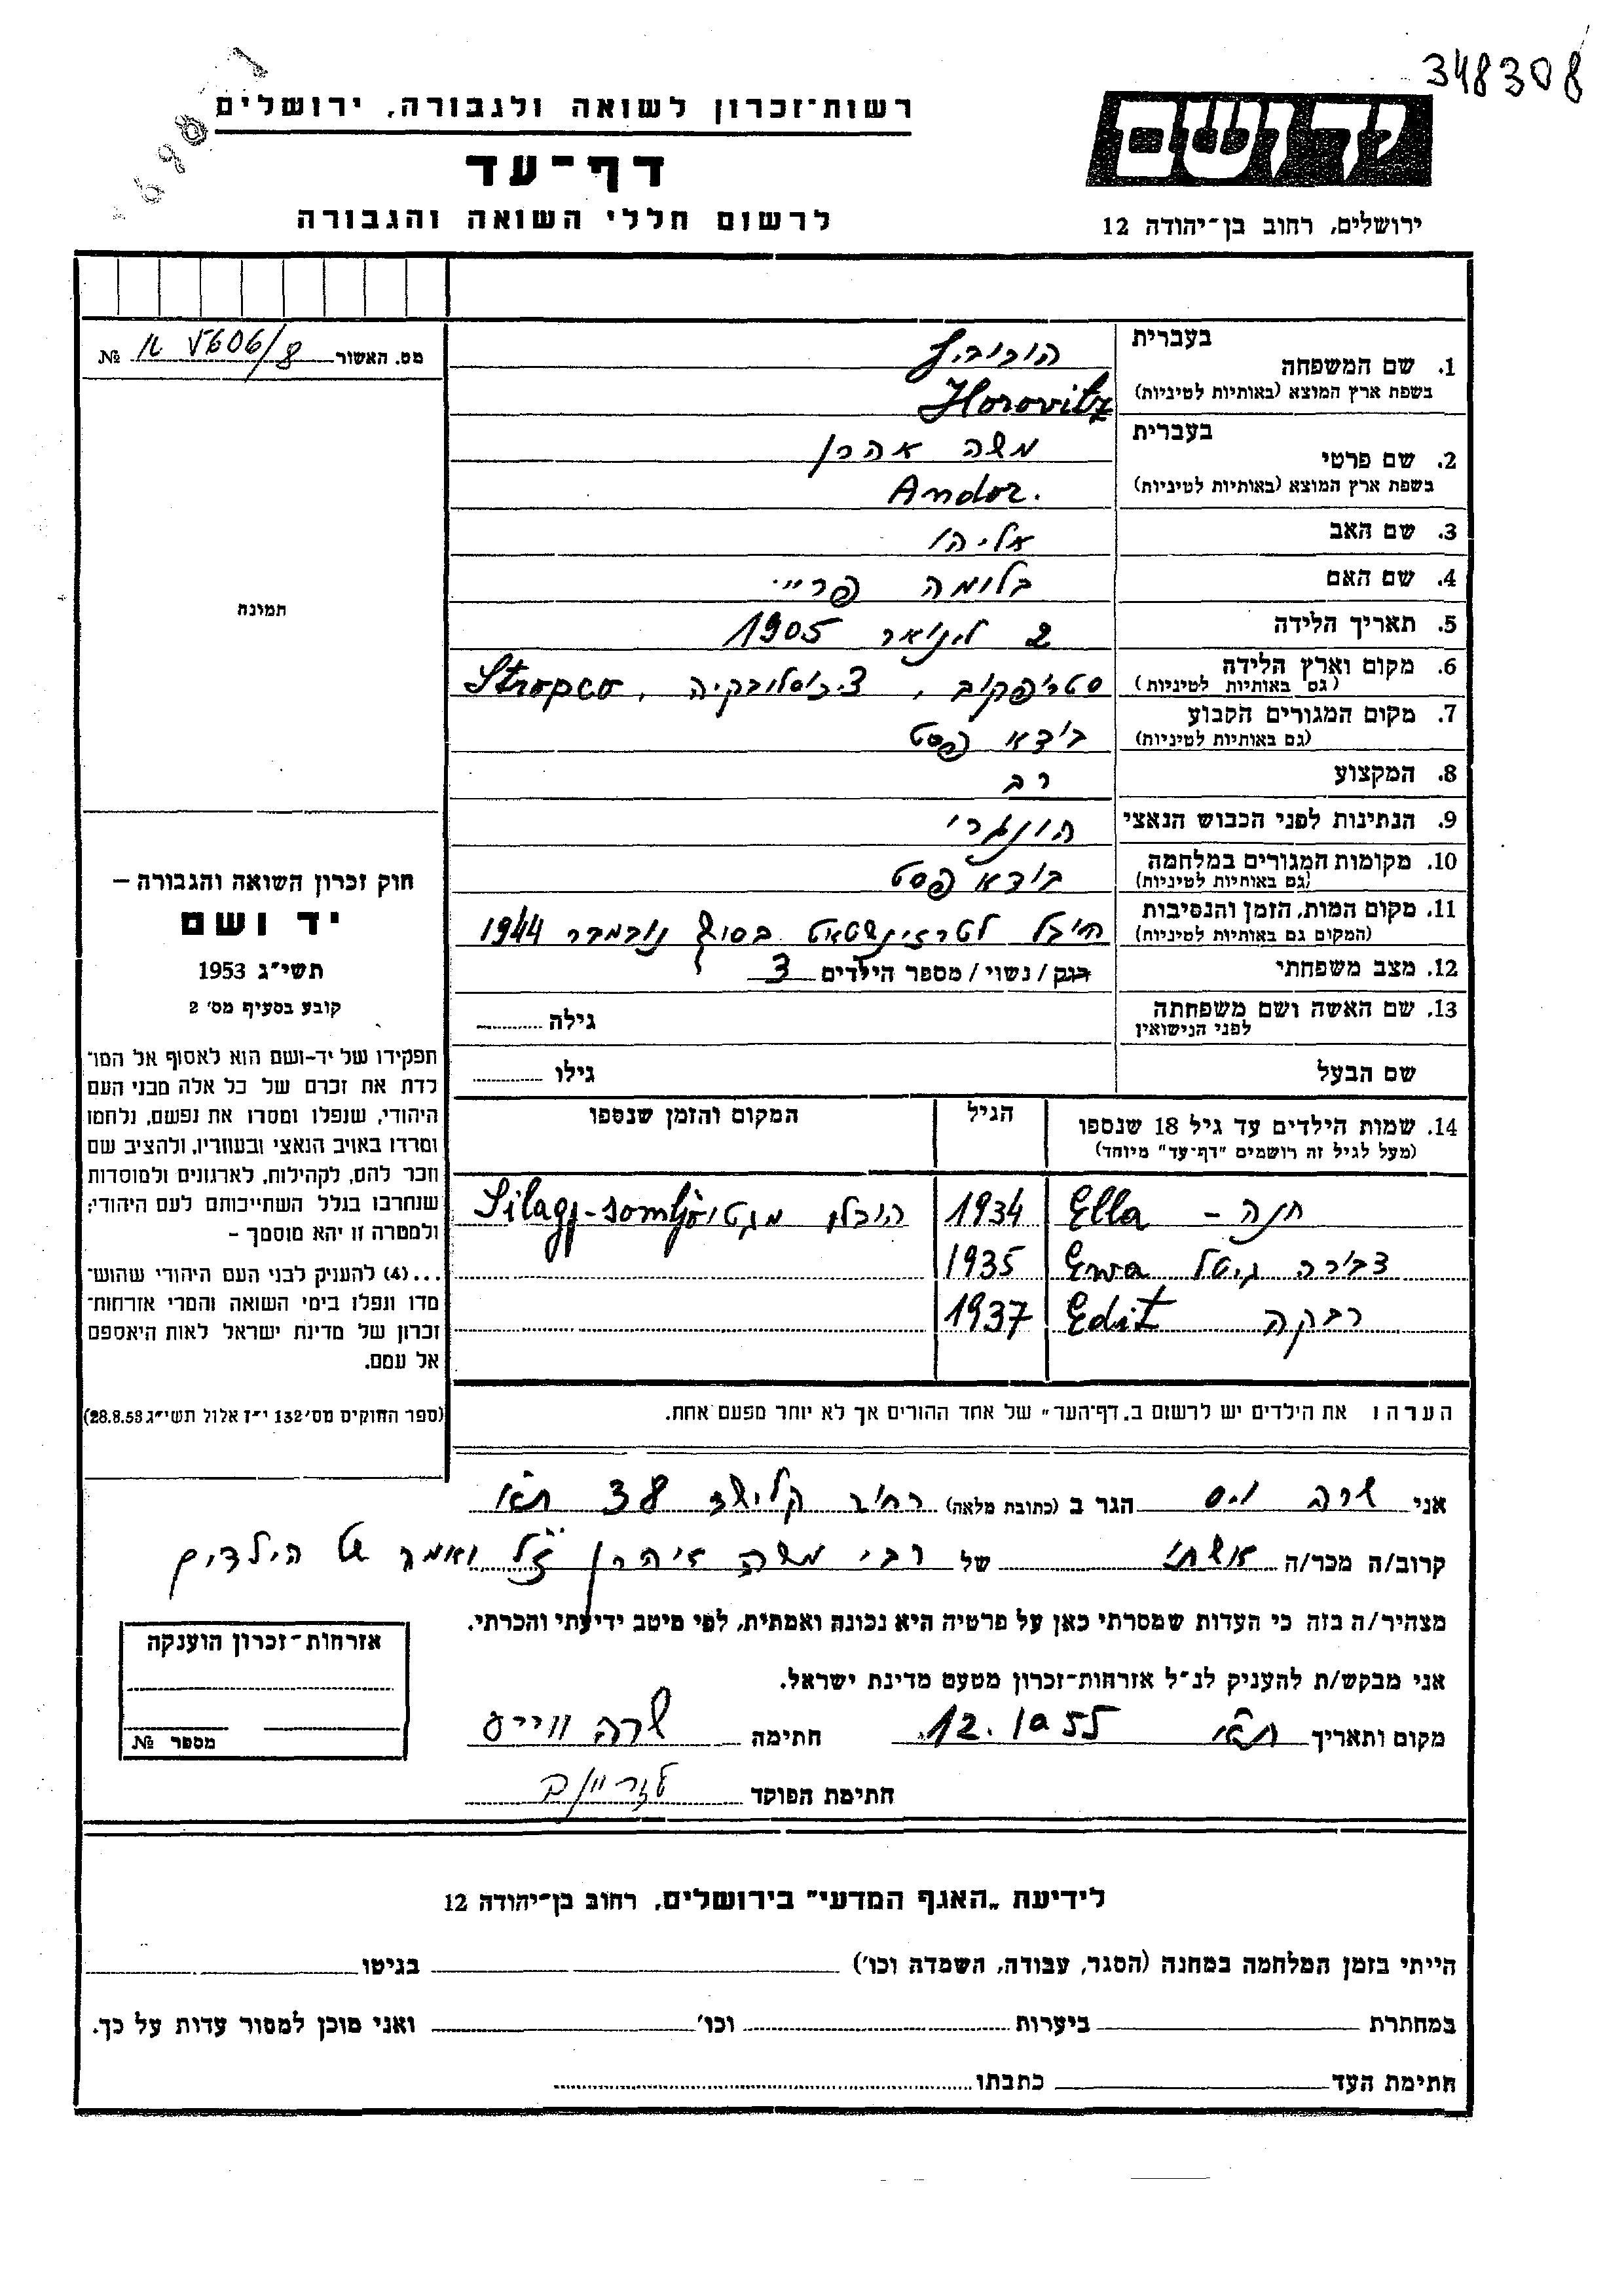 348308
רשות־זכרון לשואה ולגבורה, ירושלים
דף־עד
לרשום חללי השואה והגבורה
ידושם
ירושלים, רחוב בן־יהודה 12
מס. האשור №
1. שם המשפחה
בעברית הורוביץ
בשפת ארץ המוצא (באותיות לטיניות) Horovitz
2. שם פרטי
בעברית משה אהרן
בשפת ארץ המוצא (באותיות לטיניות) Andor.
3. שם האב אליהו
4. שם האם בלומה
5. תאריך הלידה 2 לינואר 1905
6. מקום וארץ הלידה
(גם באותיות לטיניות) סטרופקוב, צ׳כוסלובקיה, Stropco
7. מקום המגורים הקבוע
(גם באותיות לטיניות) בודא פסט
8. המקצוע רב
9. הנתינות לפני הכבוש הנאצי הונגרי
10. מקומות המגורים במלחמה
(גם באותיות לטיניות) בודא פסט
11. מקום המות, הזמן והנסיבות
(המקום גם באותיות לטיניות) הובל לטרזינשטאט בסוף נובמבר 1944
12. מצב משפחתי רוק / נשוי / מספר הילדים 3
13. שם האשה ושם משפחתה
לפני הנישואין גילה
שם הבעל גילו
14. שמות הילדים עד גיל 18 שנספו הגיל המקום והזמן שנספו
(מעל לגיל זה רושמים "דף־עד" מיוחד)
חנה - Ella 1934 הובלו מגטו Silagy-somljo
דבורה גיטל Ewa 1935
רבקה Edit 1937
הערה: את הילדים יש לרשום ב„דף־העד" של אחד ההורים אך לא יותר מפעם אחת.
תמונה
חוק זכרון השואה והגבורה –
יד ושם
תשי״ג 1953
קובע בסעיף מס׳ 2
תפקידו של יד-ושם הוא לאסוף אל המו־
לדת את זכרם של כל אלה מבני העם
היהודי, שנפלו ומסרו את נפשם, נלחמו
ומרדו באויב הנאצי ובעוזריו, ולהציב שם
וזכר להם, לקהילות, לארגונים ולמוסדות
שנחרבו בגלל השתייכותם לעם היהודי;
ולמטרה זו יהא מוסמך –
...(4) להעניק לבני העם היהודי שהוש־
מדו ונפלו בימי השואה והמרי אזרחות־
זכרון של מדינת ישראל לאות היאספם
אל עמם.
(ספר החוקים מס׳ 132 י״ז אלול תשי״ג 28.8.53)
אני שרה ויס הגר ב (כתובת מלאה) רחוב קלישר 38 ת״א
קרוב/ה מכר/ה אשתו של רבי משה אהרן ז״ל הילדים
מצהיר/ה בזה כי העדות שמסרתי כאן על פרטיה היא נכונה ואמתית, לפי מיטב ידיעתי והכרתי.
אני מבקש/ת להעניק לנ״ל אזרחות־זכרון מטעם מדינת ישראל.
מקום ותאריך ת״א 12.10.55 חתימה שרה ווייס
חתימת הפוקד
אזרחות־זכרון הוענקה
מספר №
לידיעת „האגף המדעי" בירושלים, רחוב בן־יהודה 12
הייתי בזמן המלחמה במחנה (הסגר, עבודה, השמדה וכו׳) בגיטו
במחתרת ביערות וכו׳ ואני מוכן למסור עדות על כך.
חתימת העד כתבתו